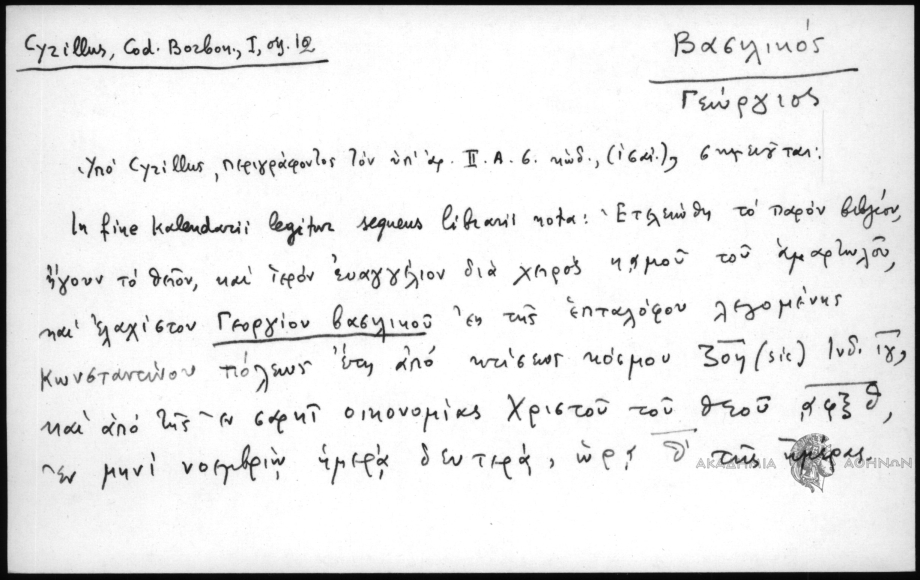 Cyrillus, Cod. Borbon., I, σγ. 12
Βασιλικός
Γεώργιος
Ὑπό Cyrillus, περιγράφοντος τόν ὑπ' ἀρ. II. A. 6. κώδ., σημειοῦται:
In fine Kalendarii legitur sequens librarii nota: Ἐτελειώθη τό παρόν βιβλίον,
ἤγουν τό θεῖον, καί ἱερόν ἐυαγγέλιον διά χειρός κἀμοῦ τοῦ ἁμαρτωλοῦ,
καί ἐλαχίστου Γεοργίου βασιλικοῦ ἐκ τῆς ἑπταλόφου λεγομένης
Κωνσταντίνου πόλεως ἔτη ἀπό κτίσεως κόσμου ζοη (sic) Ινδ. ιγ,
καί ἀπό τῆς ἐν σαρκί οικονομίας Χριστοῦ τοῦ θεοῦ ͵αφξθ,
ἐν μηνί νοεμβρίῳ ἡμέρᾳ δευτέρᾳ, ὥρᾳ θ τῆς ἡμέρας.
ΑΚΑΔΗΜΙΑ ΑΘΗΝΩΝ